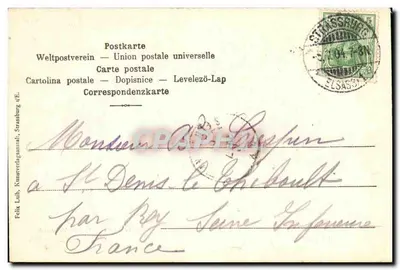 Postkarte
Weltpostverein — Union postale universelle
Carte postale
Cartolina postale — Dopisnice — Levelező-Lap
Correspondenzkarte
STRASSBURG
ELSASS
Monsieur
à St Denis le Thiboult
par Rey Seine Inférieure
France
Felix Luib, Kunstverlagsanstalt, Strassburg i/E.